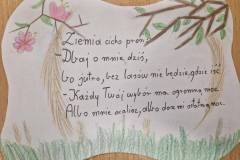 Ziemia cicho prosi:
- Dbaj o mnie dziś,
bo jutro, bez lasów nie będzie gdzie iść.
- Każdy Twój wybór ma ogromną moc.
Albo mnie ocalisz, albo da mi stałą noc.